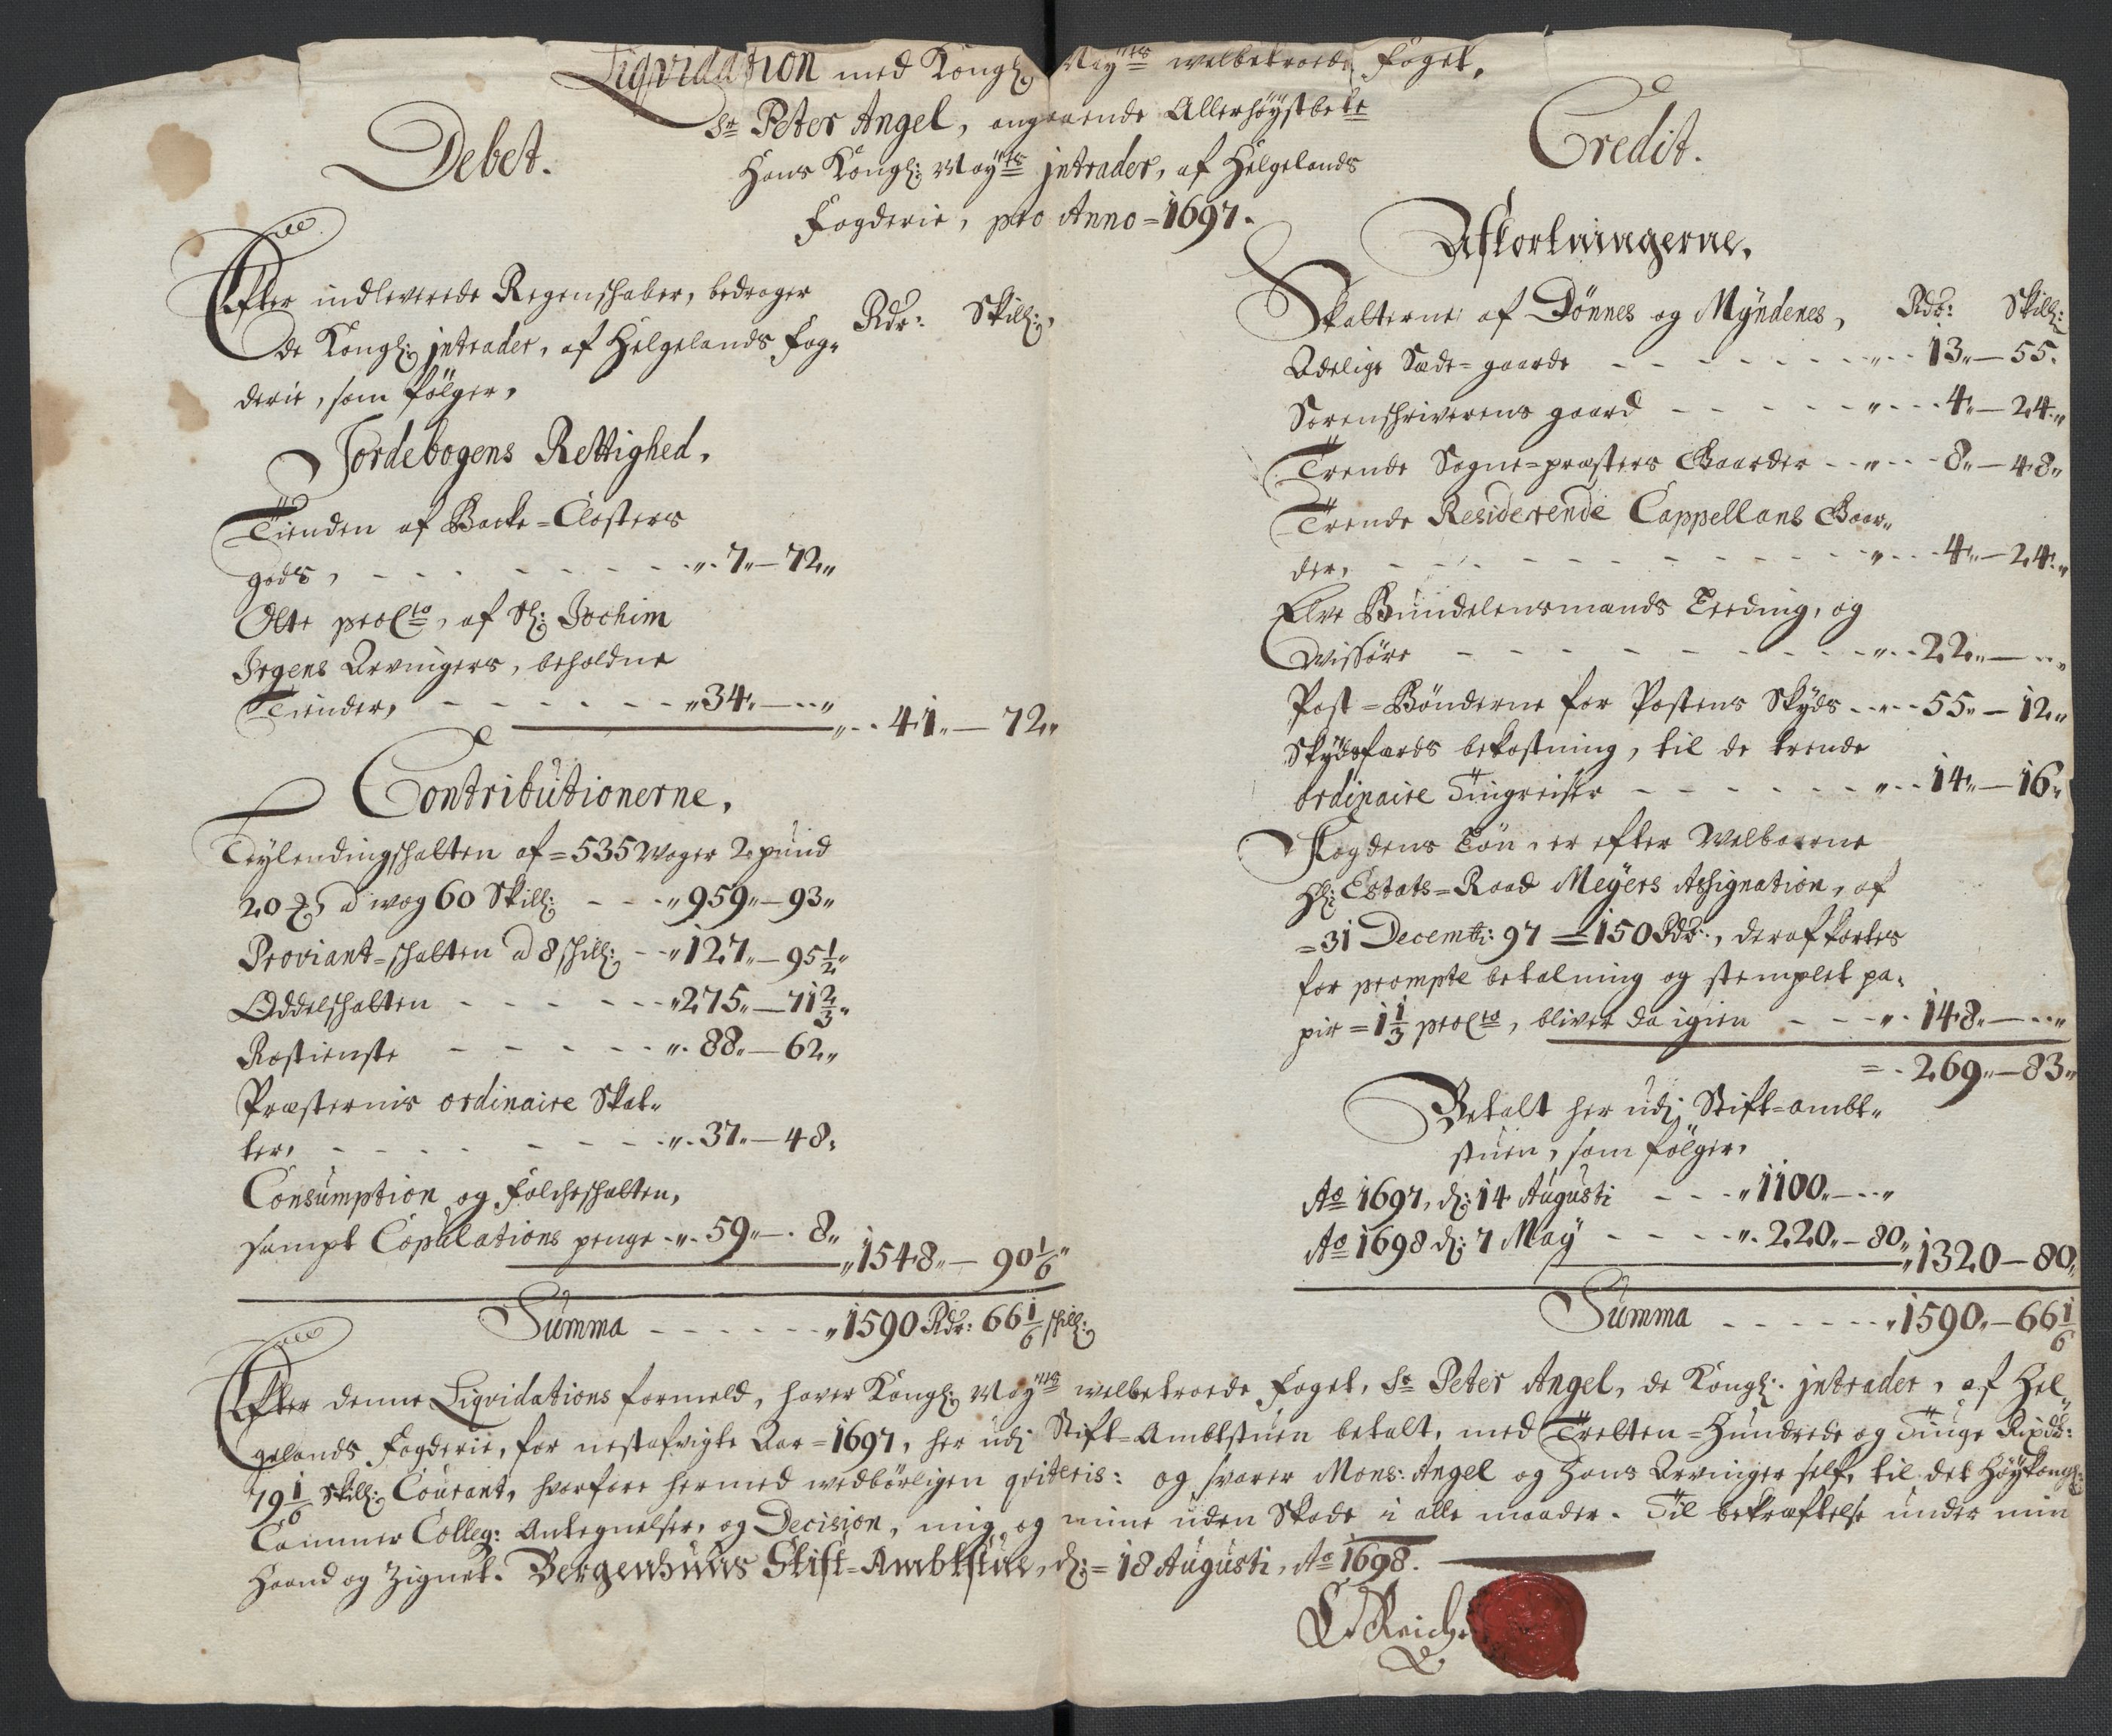 Liqvidation med Kongl: Mayts welbetroede foget,
Sr Peter Angel, angaaende Allerhøystbete
Hans Kongl: Mayts jntrader, af Helgelands
Fogderie, pro Anno = 1697.
Debet.
Efter indleverede Regenschaber, bedrager
de Kongl: jntrader, af Helgelands fog-
derie, som følger,
Rdr: Skill:
Jordebogens Rettighed,
Tienden af Backe = Closters
gods, - - - - - 7 — 72
Otte proCto, af Sl: Jochim
Jrgens Arvingers, beholdne
Tiender, - - - - - 34 — ..
41 — 72
Contributionerne,
Leylendingschatten af = 535 Woger 2 pund
20 ℔ a wog 60 Skill: - - 959 — 93
Proviant = schatten a 8 schill: - - 127 — 95 1/2
Oddelschatten - - - - - 275 — 71 2/3
Rostienste - - - - - 88 — 62
Præsternis ordinaire Skat-
ter, - - - - - 37 — 48
Consumption og folcheschatten,
sampt Copulations penge - 59 — 8
1548 — 90 1/6
Summa - - - - - 1590 Rdr: 66 1/6 schill:
Credit.
Afkortningerne,
Skatterne af Dønnes og Myndenes, Rdr: Skill:
Adelige Sæde = gaarde - - - - - 13 — 55
Sorenschriverens gaard - - - - - 4 — 24
Trende Sogne = præsters Gaarder - - 8 — 48
Trende Residerende Cappellans Gaar-
der, - - - - - 4 — 24
Elve Bundelensmands Leeding, og
Wissøre - - - - - 22 — ..
Post = Bønderne for Postens Skyds - - 55 — 12
Skydsfærds bekostning, til de trende
ordinaire Tingreiser - - - - - 14 — 16
Fogdens Løn, er efter Welbaarne
Hl: Estats = Raad Meyers Assignation, af
= 31 Decembr: 97 = 150 Rdr:, deraf kortes
for prompte betalning og stemplet pa-
pir = 1 1/3 proCto, bliver da igien - - - 148 — ..
= 269 — 83
Betalt her udj Stift = ambt-
stuen, som følger,
Ao 1697, d: 14 Augusti - - - 1100 — ..
Ao 1698 d: 7 May - - - - 220 — 80
1320 — 80
Summa - - - - - 1590 — 66 1/6
Efter denne Liqvidations formeld, haver Kongl: Mayts welbetroede foget, Sr Peter Angel, de Kongl: jntrader, af Hel-
gelands Fogderie, for nestafvigte Aar = 1697, her udj Stift = Ambtstuen betalt, med Tretten = Hundrede og Tiuge Rixdr:
79 1/6 Skill: Courant, hvorfore hermed wedbørligen qviteris: og svarer Mons: Angel og hans Arvinger self, til det Høykongl:
Cammer Colleg: Antegnelser, og Decision, mig og mine uden Skade i alle maader. Til bekræftelse under min
Haand og Zignet. Bergenhuus Stift = Ambtstue, d: = 18 Augusti, Ao 1698.